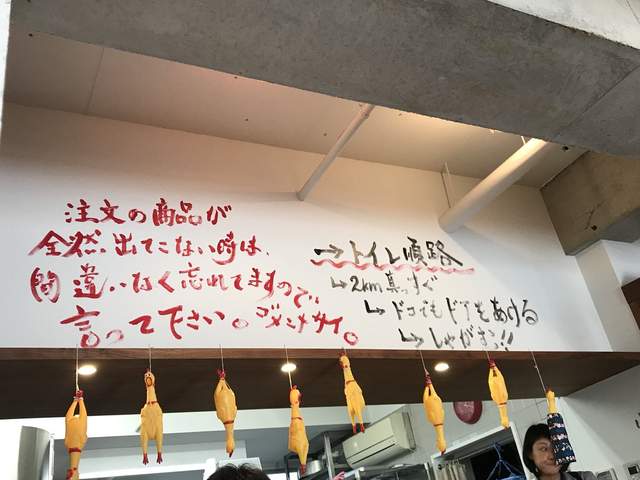 注文の商品が
全然、出てこない時は、
間違いなく忘れてますので、
言って下さい。ゴメンナサイ。
→トイレ順路
↳2km真っすぐ
↳ドコでもドアをあける
↳しゃがむっ!!